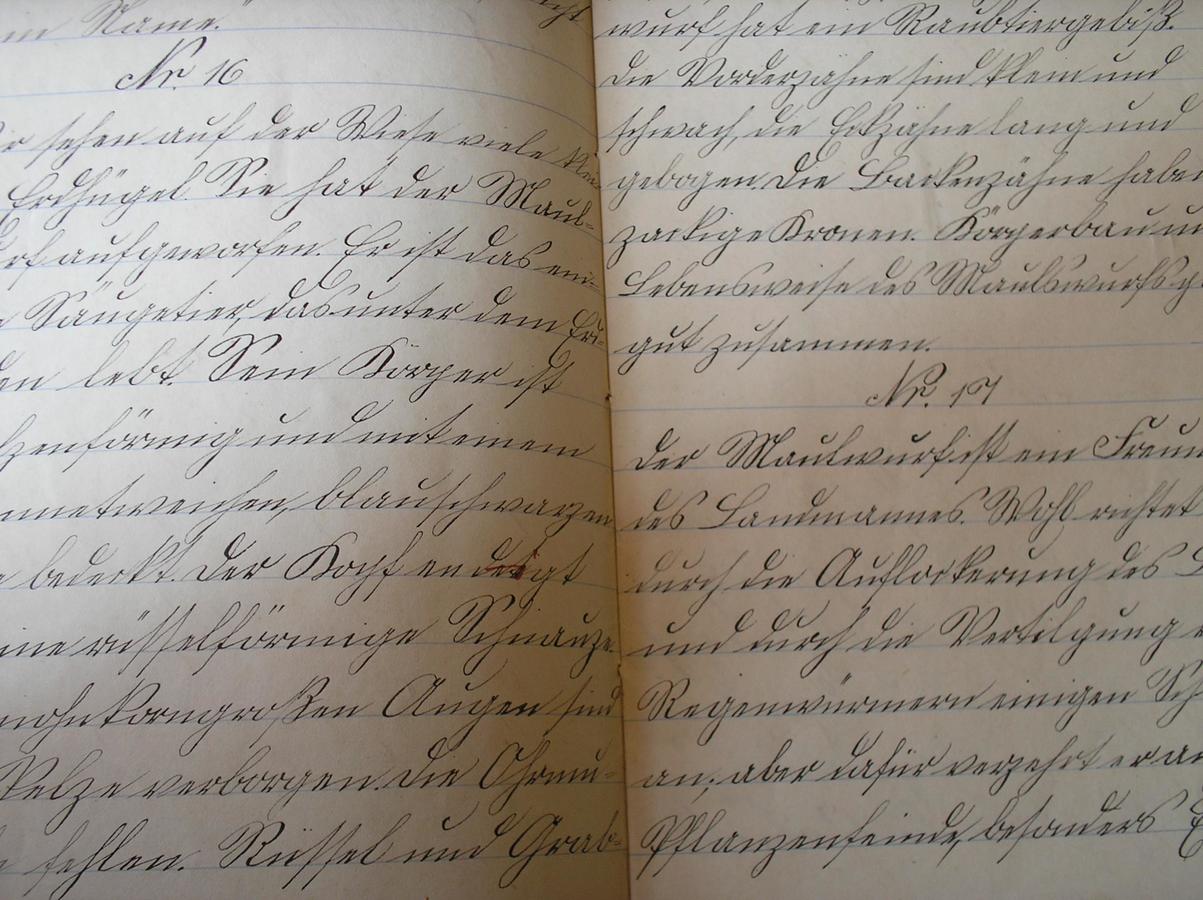 Name."
Nr. 16
sehen auf der Wiese viele klei-
Erdhügel. Sie hat der Maul-
rf aufgeworfen. Er ist das ein-
Säugetier, das unter dem Erd-
en lebt. Sein Körper ist
zenförmig und mit einem
mmetweichen, blauschwarzen
bedeckt. Der Kopf endigt
ine rüsselförmige Schnauze.
mohnkorngroßen Augen sind
Pelze verborgen. Die Ohrmu-
fehlen. Rüssel und Grab-
wurf hat ein Raubtiergebiß.
Die Vorderzähne sind klein und
schwach, die Eckzähne lang und
gebogen. Die Backenzähne haben
zackige Kronen. Körperbau un
Lebensweise des Maulwurfs g
gut zusammen.
Nr. 17
Der Maulwurf ist ein Freun
des Landmannes. Wohl richtet
durch die Auflockerung des
und durch die Vertilgung
Regenwürmern einigen Sch
an; aber dafür verzehrt er an
Pflanzenfeinde, besonders E